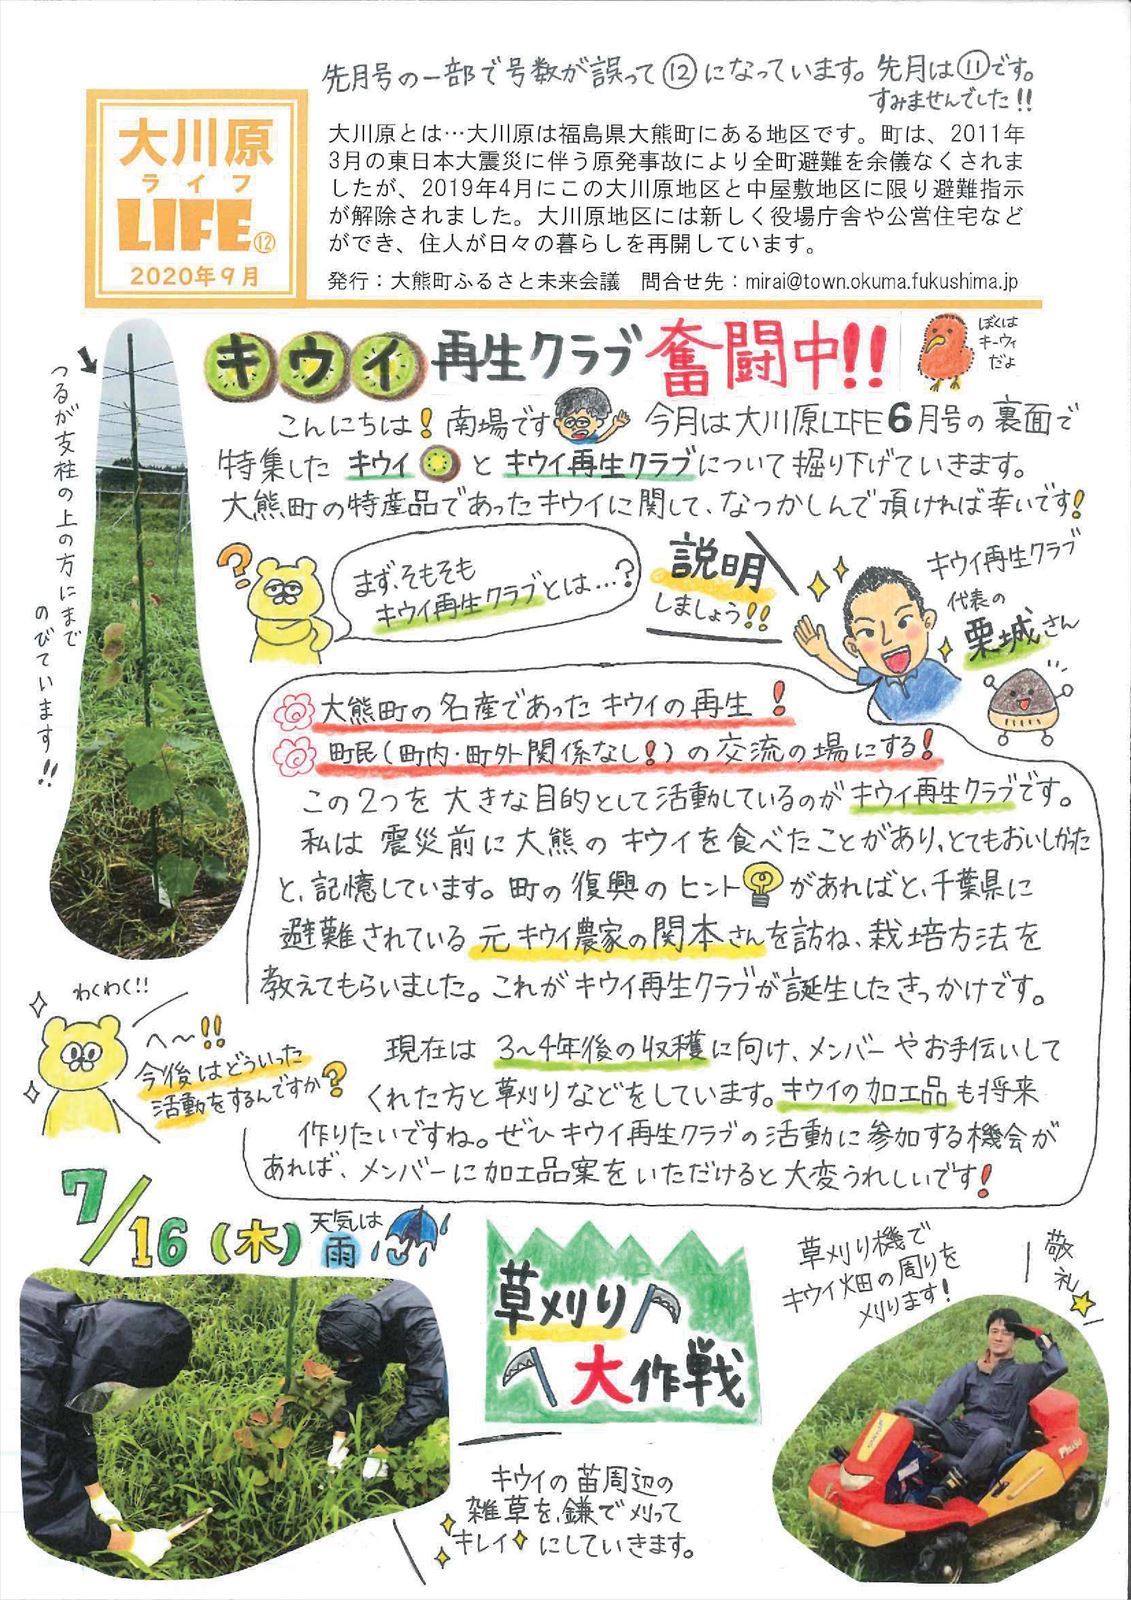 先月号の一部で号数が誤って⑫になっています。先月は⑪です。
すみませんでした!!
大川原
ライフ
LIFE⑫
2020年9月
大川原とは…大川原は福島県大熊町にある地区です。町は、2011年
3月の東日本大震災に伴う原発事故により全町避難を余儀なくされま
したが、2019年4月にこの大川原地区と中屋敷地区に限り避難指示
が解除されました。大川原地区には新しく役場庁舎や公営住宅など
ができ、住人が日々の暮らしを再開しています。
発行：大熊町ふるさと未来会議　問合せ先：mirai@town.okuma.fukushima.jp
キウイ再生クラブ奮闘中!!
ぼくは
キーウィ
だよ
つるが支柱の上の方にまで
のびています!!
こんにちは!南場です 今月は大川原LIFE6月号の裏面で
特集したキウイとキウイ再生クラブについて掘り下げていきます。
大熊町の特産品であったキウイに関して、なつかしんで頂ければ幸いです!
?
まず、そもそも
キウイ再生クラブとは…?
説明
しましょう!!
キウイ再生クラブ
代表の
栗城さん
大熊町の名産であったキウイの再生!
町民(町内・町外関係なし!)の交流の場にする!
この2つを大きな目的として活動しているのがキウイ再生クラブです。
私は震災前に大熊のキウイを食べたことがあり、とてもおいしかった
と、記憶しています。町の復興のヒントがあればと、千葉県に
避難されている元キウイ農家の関本さんを訪ね、栽培方法を
教えてもらいました。これがキウイ再生クラブが誕生したきっかけです。
わくわく!!
へ〜!!
今後はどういった
活動をするんですか?
現在は3〜4年後の収穫に向け、メンバーやお手伝いして
くれた方と草刈りなどをしています。キウイの加工品も将来
作りたいですね。ぜひキウイ再生クラブの活動に参加する機会が
あれば、メンバーに加工品案をいただけると大変うれしいです!
7/16(木)
天気は
雨
草刈り
大作戦
草刈り機で
キウイ畑の周りを
刈ります!
敬礼
キウイの苗周辺の
雑草を、鎌で刈って
キレイにしていきます。